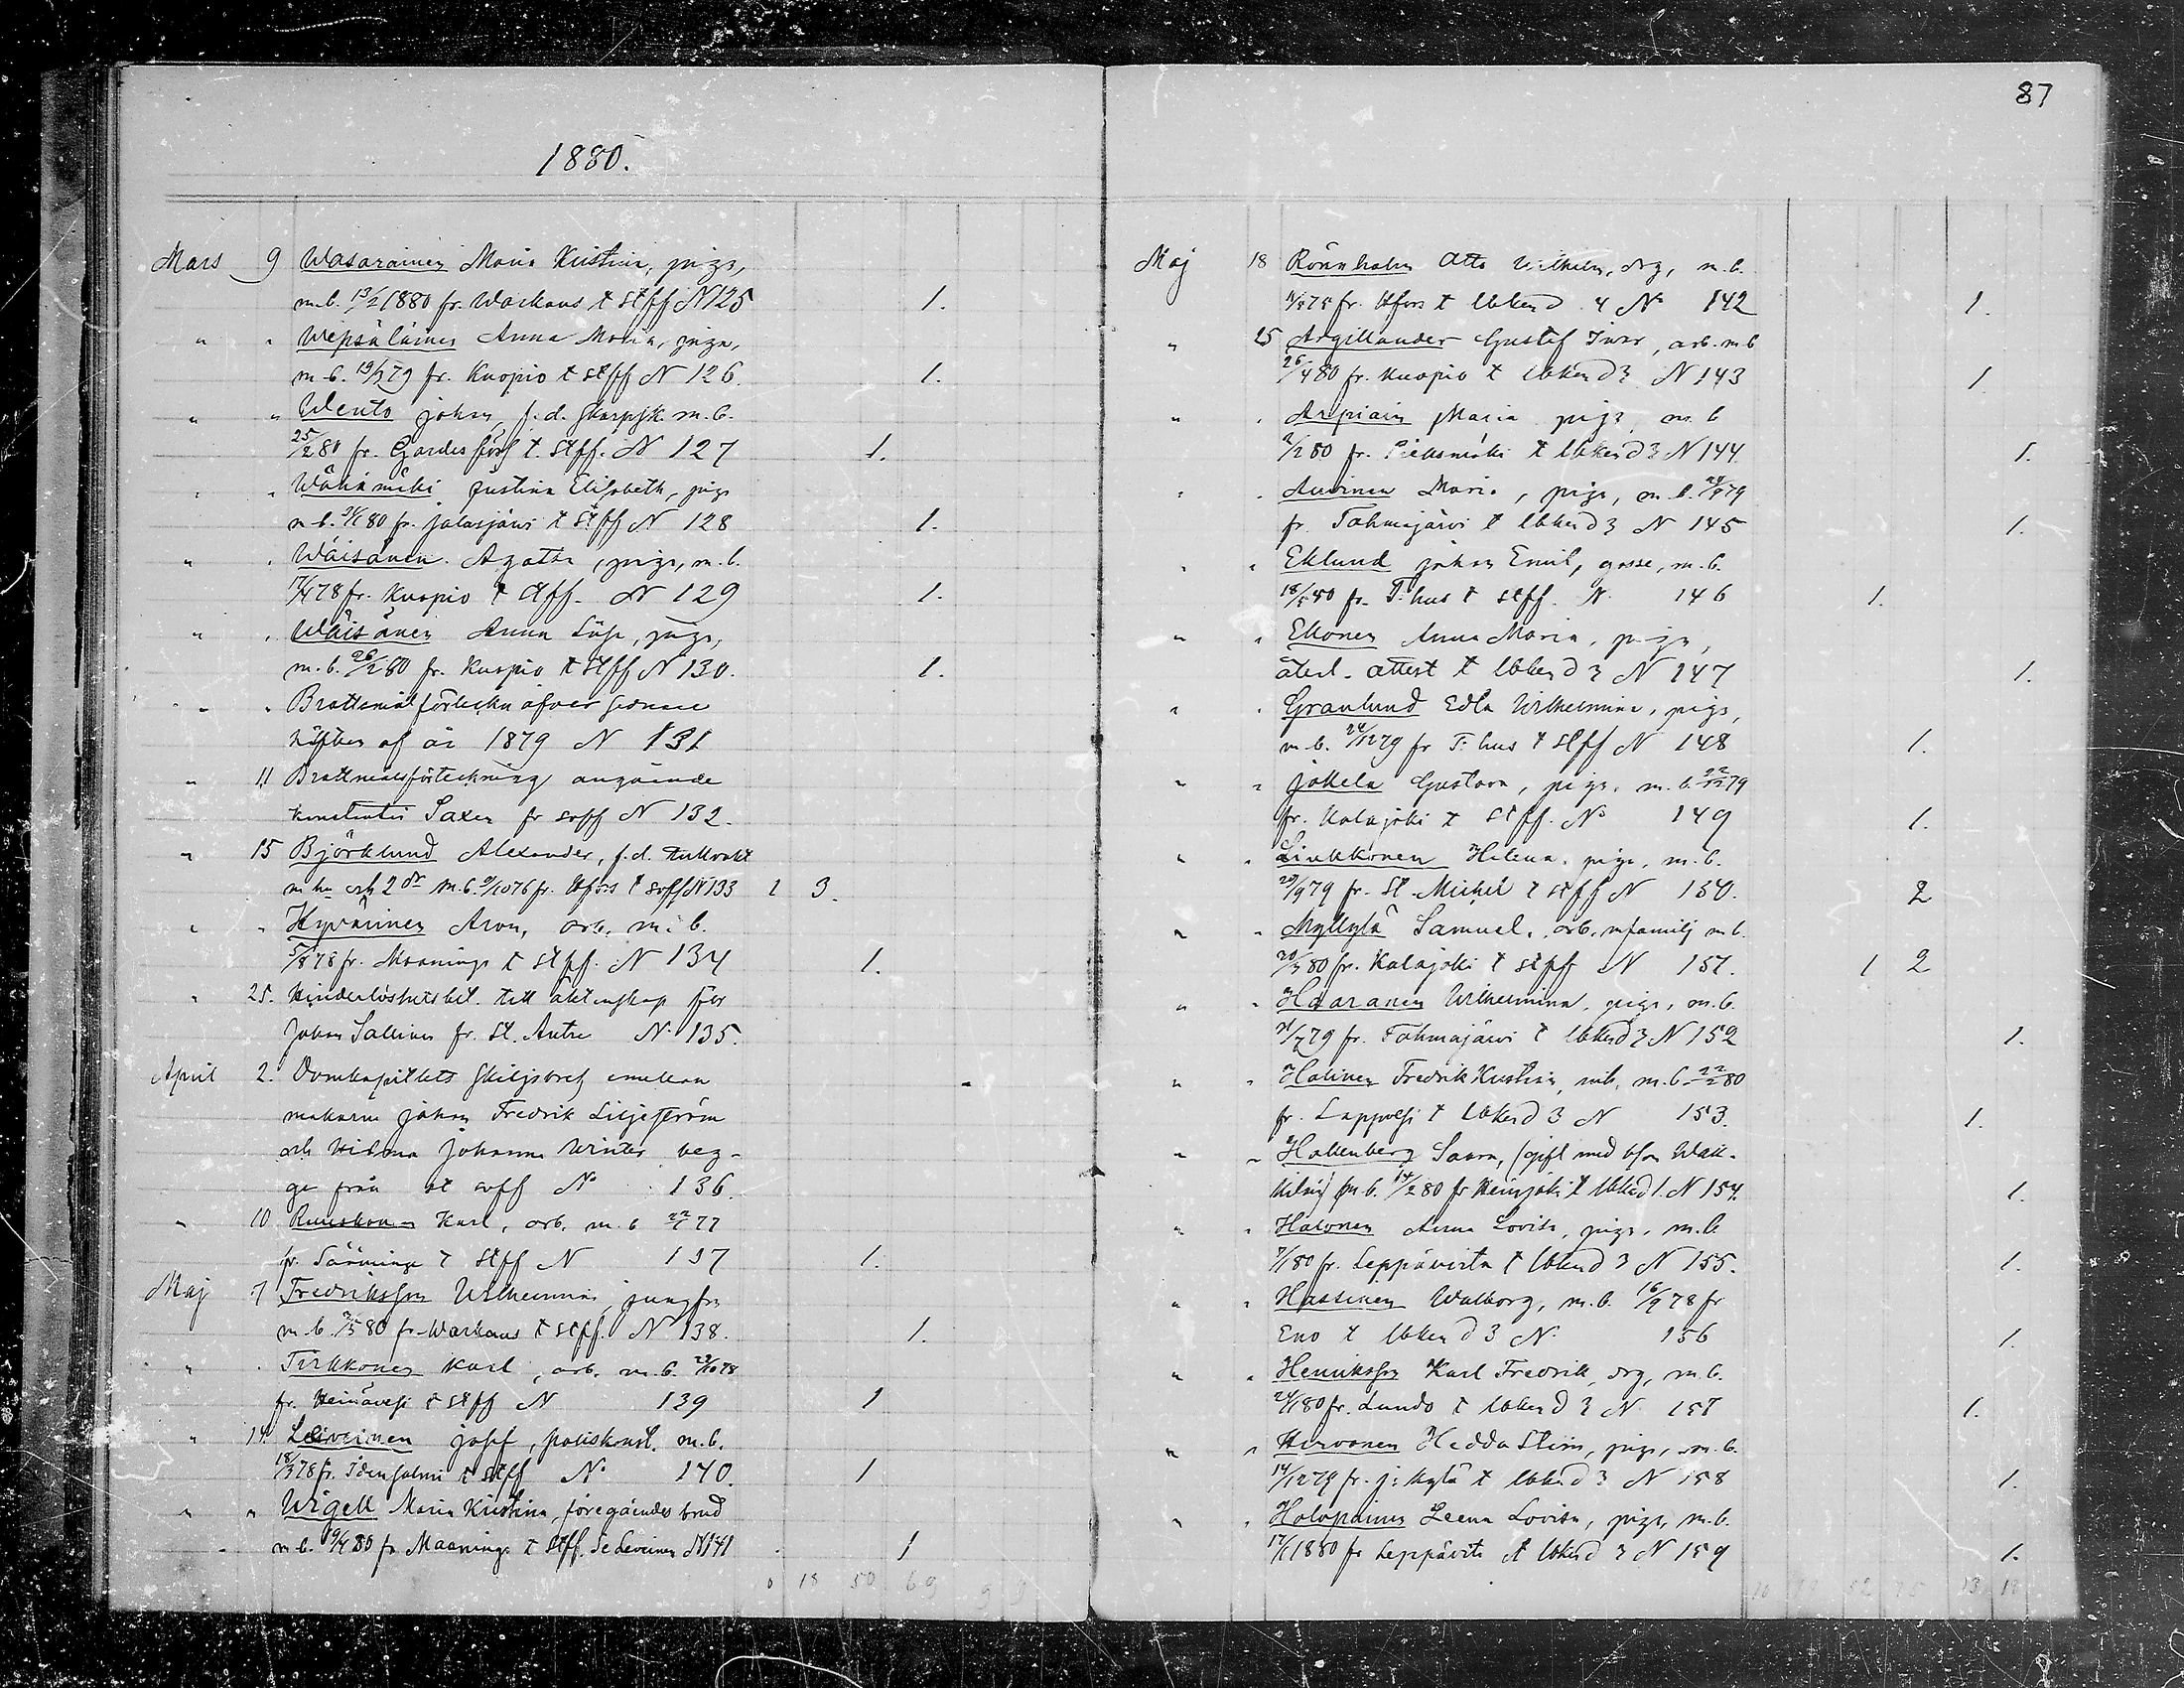 1880.
Mars 9 Wasarainen Maria Kristina, piga,
m.b. 13/2 1880 fr. Warkaus t stff N 125 1.
" " Wepsäläinen Anna Maria, piga,
m.b. 19/979 fr. Kuopio t stff N 126. 1.
" " Wento Johan, f.d. skarpsk. m.b.
25/280 fr. Gardes förs t. stff. N 127 1.
" " Wäinämäki Justina Elisabeth, piga
m.b. 80 fr. Jalasjärvi t stff N 128 1.
" " Wäisänen Agatha, piga, m.b.
17/478 fr. Kuopio t stff. N 129 1.
" " Wäisänen Anna piga,
m.b. 26/280 fr. Kuopio t stff N 130. 1.
" " Brottmålsförteckn öfver
af år 1879 N 131
" 11 Brottmålsförteckning angående
Saxen fr soff N 132.
" 15 Björklund Alexander, f.d.
m hu och 2 dr m.b. 9/1076 fr. Hfors t soff N 133 1 3.
" " Hyvärinen Aron, arb. m.b.
5/878 fr. Maaninga t stff. N 134 1.
" 25. Hinderlöshetsbet. till äktenskap för
Johan Sallinen fr. St. Andre N. 135.
April 2. Domkapitlets skiljobref emellan
makarne Johan Fredrik Liljeström
och Johanna Winter, beg-
ge från st soff No 136.
" 10 Ruuskanen Karl, arb. m.b 77
fr. Säminge t stff N 137 1.
Maj 7 Fredriksson Wilhelmina, jungfru
m.b. 3/580 fr. Warkaus t stff. N 138. 1.
" " Tirkkonen Karl, arb. m.b. 29/1078
fr. Heinävesi t stff N 139 1
" 14. Leiveinen Josef, poliskonst. m.b.
18/378 fr. Idensalmi t stff No 140. 1
" " Wigell Maria Kristina, föregåendes brud
m.b. 19/480 fr Maaninga t stff. Se Leveinen N 141 1
0 18 50 69 9 9
87
Maj 18 Rönnholm Otto Wilhelm, drg, m.b.
75 fr. Hfors t lbken d. 4 No 142 1.
" 25 Argillander Gustaf Ivar, arb. m.b
26/480 fr. Kuopio t lbken d 3 N 143 1
" " Arpiain Maria piga m.b
2/280 fr. Pieksmäki t lbken d 3 N 144 1.
" " Auvinen Maria, piga, m.b. 24/979
fr. Tohmajärvi t lbken d 3 N 145 1.
" " Eklund Johan Emil, gosse, m.b.
18/580 fr. T:hus t stff. N. 146 1.
" " Ekonen Anna Maria, piga,
åted. attest t lbken d 3 N 147 1.
" " Granlund Edla Wilhelmina, piga,
m.b. 24/1279 fr T:hus t stff N 148 1.
" " Jokela Gustava, piga, m.b. 22/1279
fr. Kalajoki t stff. No 149 1.
" " Liukkonen Helena, piga, m.b.
29/979 fr. St. Michel t stff N 150. 2
" " Myllylä Samuel, arb. m familj m.b.
20/380 fr. Kalajoki t stff N 151. 1 2
" " Haaranen Wilhelmina, piga, m.b.
21/779 fr. Tohmajärvi t lbken d 3 N 152 1.
" " Halinen Fredrik Kristian, m.b. 22/280
fr. Lappvesi t lbken d 3 N 153. 1.
" " Hallenberg Saara, (gift med
m.b. 14/280 fr Heinjoki t lbken d 1. N 154. 1.
" " Halonen Anna Lovisa, piga, m.b.
7/180 fr. Leppävirta t lbken d 3 N 155. 1.
" " Hassinen Walborg, m.b. 16/978 fr
Eno t lbken d 3 N. 156 1.
" " Henriksson Karl Fredrik, drg, m.b.
24/180 fr. Lundo t lbken d 3 N 157 1.
" " Hirvonen Hedda Stina, piga, m.b.
14/1279 fr. J:kylä t lbken d 3 N 158 1.
" " Holopainen Leena Lovisa, piga, m.b.
17/11880 fr Leppävirta t lbken d 3 N 159 1.